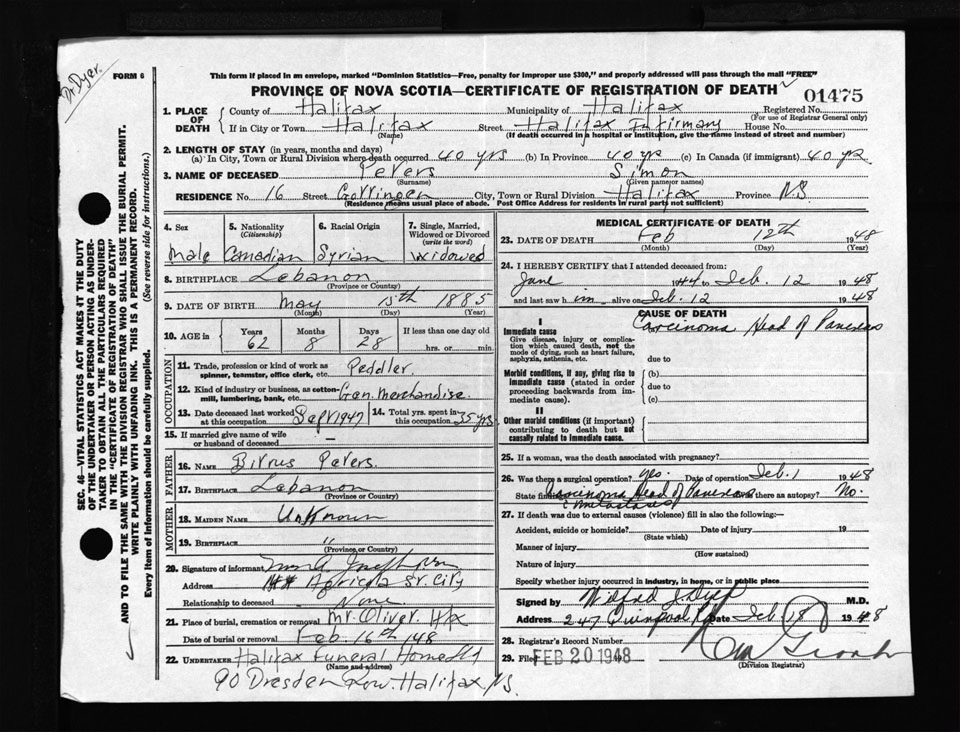 Dr Dyer.
FORM 6
This form if placed in an envelope, marked "Dominion Statistics—Free, penalty for improper use $300," and properly addressed will pass through the mail "FREE"
PROVINCE OF NOVA SCOTIA—CERTIFICATE OF REGISTRATION OF DEATH
01475
1. PLACE OF DEATH
County of Halifax Municipality of Halifax Registered No.
(For use of Registrar General only)
If in City or Town Halifax Street Halifax Infirmary House No.
(Name) (If death occurred in a hospital or institution, give the name instead of street and number)
2. LENGTH OF STAY (in years, months and days)
(a) In City, Town or Rural Division where death occurred 40 yrs (b) In Province 40 yr (c) In Canada (if immigrant) 40 yr.
3. NAME OF DECEASED Peters Simon
(Surname) (Given name or names)
RESIDENCE No. 16 Street Gottingen City, Town or Rural Division Halifax Province N.S
(Residence means usual place of abode. Post Office Address for residents in rural parts not sufficient)
SEC. 46—VITAL STATISTICS ACT MAKES IT THE DUTY OF THE UNDERTAKER OR PERSON ACTING AS UNDERTAKER TO OBTAIN ALL THE PARTICULARS REQUIRED IN THE "CERTIFICATE OF REGISTRATION OF DEATH"
AND TO FILE THE SAME WITH THE DIVISION REGISTRAR WHO SHALL ISSUE THE BURIAL PERMIT.
WRITE PLAINLY WITH UNFADING INK. THIS IS A PERMANENT RECORD.
Every item of information should be carefully supplied. (See reverse side for instructions.)
4. Sex
Male
5. Nationality
(Citizenship)
Canadian
6. Racial Origin
Syrian
7. Single, Married, Widowed or Divorced
(write the word)
Widowed
8. BIRTHPLACE Lebanon
(Province or Country)
9. DATE OF BIRTH May 15th 1885
(Month) (Day) (Year)
10. AGE in
Years 62
Months 8
Days 28
If less than one day old
hrs. or min.
OCCUPATION
11. Trade, profession or kind of work as spinner, teamster, office clerk, etc. Peddler.
12. Kind of industry or business, as cotton-mill, lumbering, bank, etc. Gen. Merchandise.
13. Date deceased last worked at this occupation Sept 1947
14. Total yrs. spent in this occupation 35 yrs.
15. If married give name of wife or husband of deceased
FATHER
16. NAME Peters.
17. BIRTHPLACE Lebanon
(Province or Country)
MOTHER
18. MAIDEN NAME Unknown
19. BIRTHPLACE "
(Province or Country)
20. Signature of informant
Address Agricola St. City
Relationship to deceased None
21. Place of burial, cremation or removal Mt. Olivet. Hfx
Date of burial or removal Feb. 16th 148
22. UNDERTAKER Halifax Funeral Home
(Name and address)
90 Dresden Row. Halifax, N.S.
MEDICAL CERTIFICATE OF DEATH
23. DATE OF DEATH Feb 12th 1948
(Month) (Day) (Year)
24. I HEREBY CERTIFY that I attended deceased from:
June 1944 to Feb. 12 1948
and last saw him alive on Feb. 12 1948
CAUSE OF DEATH
I
Immediate cause
Give disease, injury or complication which caused death, not the mode of dying, such as heart failure, asphyxia, asthenia, etc.
Carcinoma Head of Pancreas
due to
Morbid conditions, if any, giving rise to immediate cause (stated in order proceeding backwards from immediate cause).
(b)
due to
(c)
II
Other morbid conditions (if important) contributing to death but not causally related to immediate cause.
25. If a woman, was the death associated with pregnancy?
26. Was there a surgical operation? yes. Date of operation Feb. 1 1948
State findings Carcinoma Head of Pancreas Was there an autopsy? No.
c metastases
27. If death was due to external causes (violence) fill in also the following:—
Accident, suicide or homicide? Date of injury 19
(State which)
Manner of injury
(How sustained)
Nature of injury
Specify whether injury occurred in industry, in home, or in public place
Signed by Wilfred J. Dyer M.D.
Address 247 Quinpool Rd Date Feb 18 1948
28. Registrar's Record Number
29. Filed FEB 20 1948
(Division Registrar)